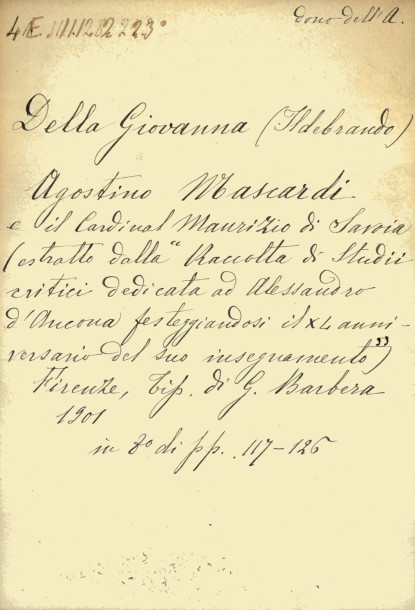 dono dell'A.
Della Giovanna (Ildebrando)
Agostino Mascardi
e il Cardinal Maurizio di Savoia
(estratto dalla "Raccolta di Studii
critici dedicata ad Alessandro
d'Ancona festeggiandosi il XL anni-
versario del suo insegnamento")
Firenze, Tip. di G. Barbera
1901
in 8º di pp. 117-126